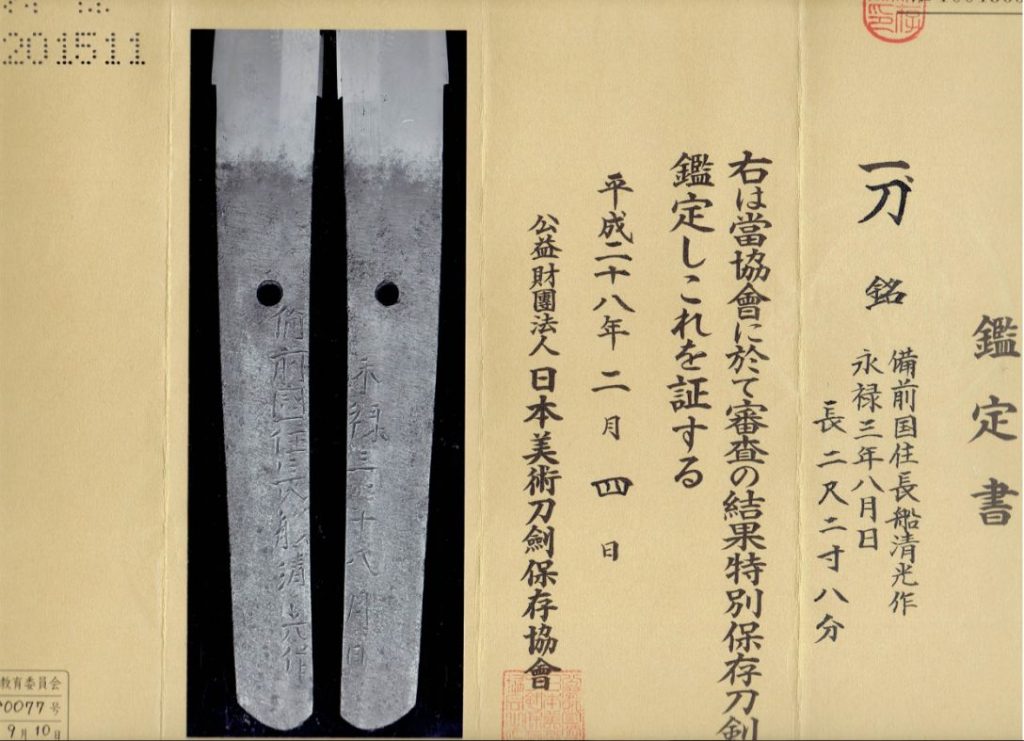 鑑定書
一刀 銘 備前国住長船清光作
永禄三年八月日
長 二尺二寸八分
右は當協會に於て審査の結果特別保存刀剣
鑑定しこれを証する
平成二十八年二月四日
公益財團法人日本美術刀劍保存協會
備前国住長船清光作
永禄三年八月日
201511
教育委員会
0077号
9月10日